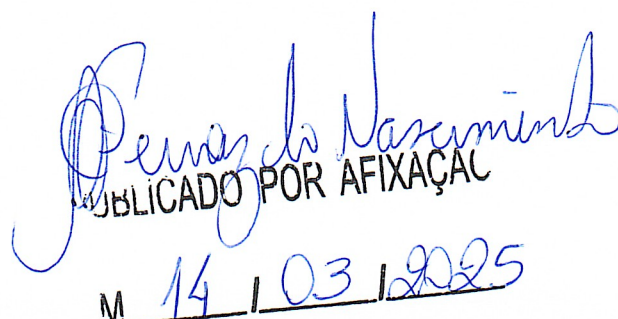 do Nascimento
PUBLICADO POR AFIXAÇÃO
M 14 / 03 / 2025